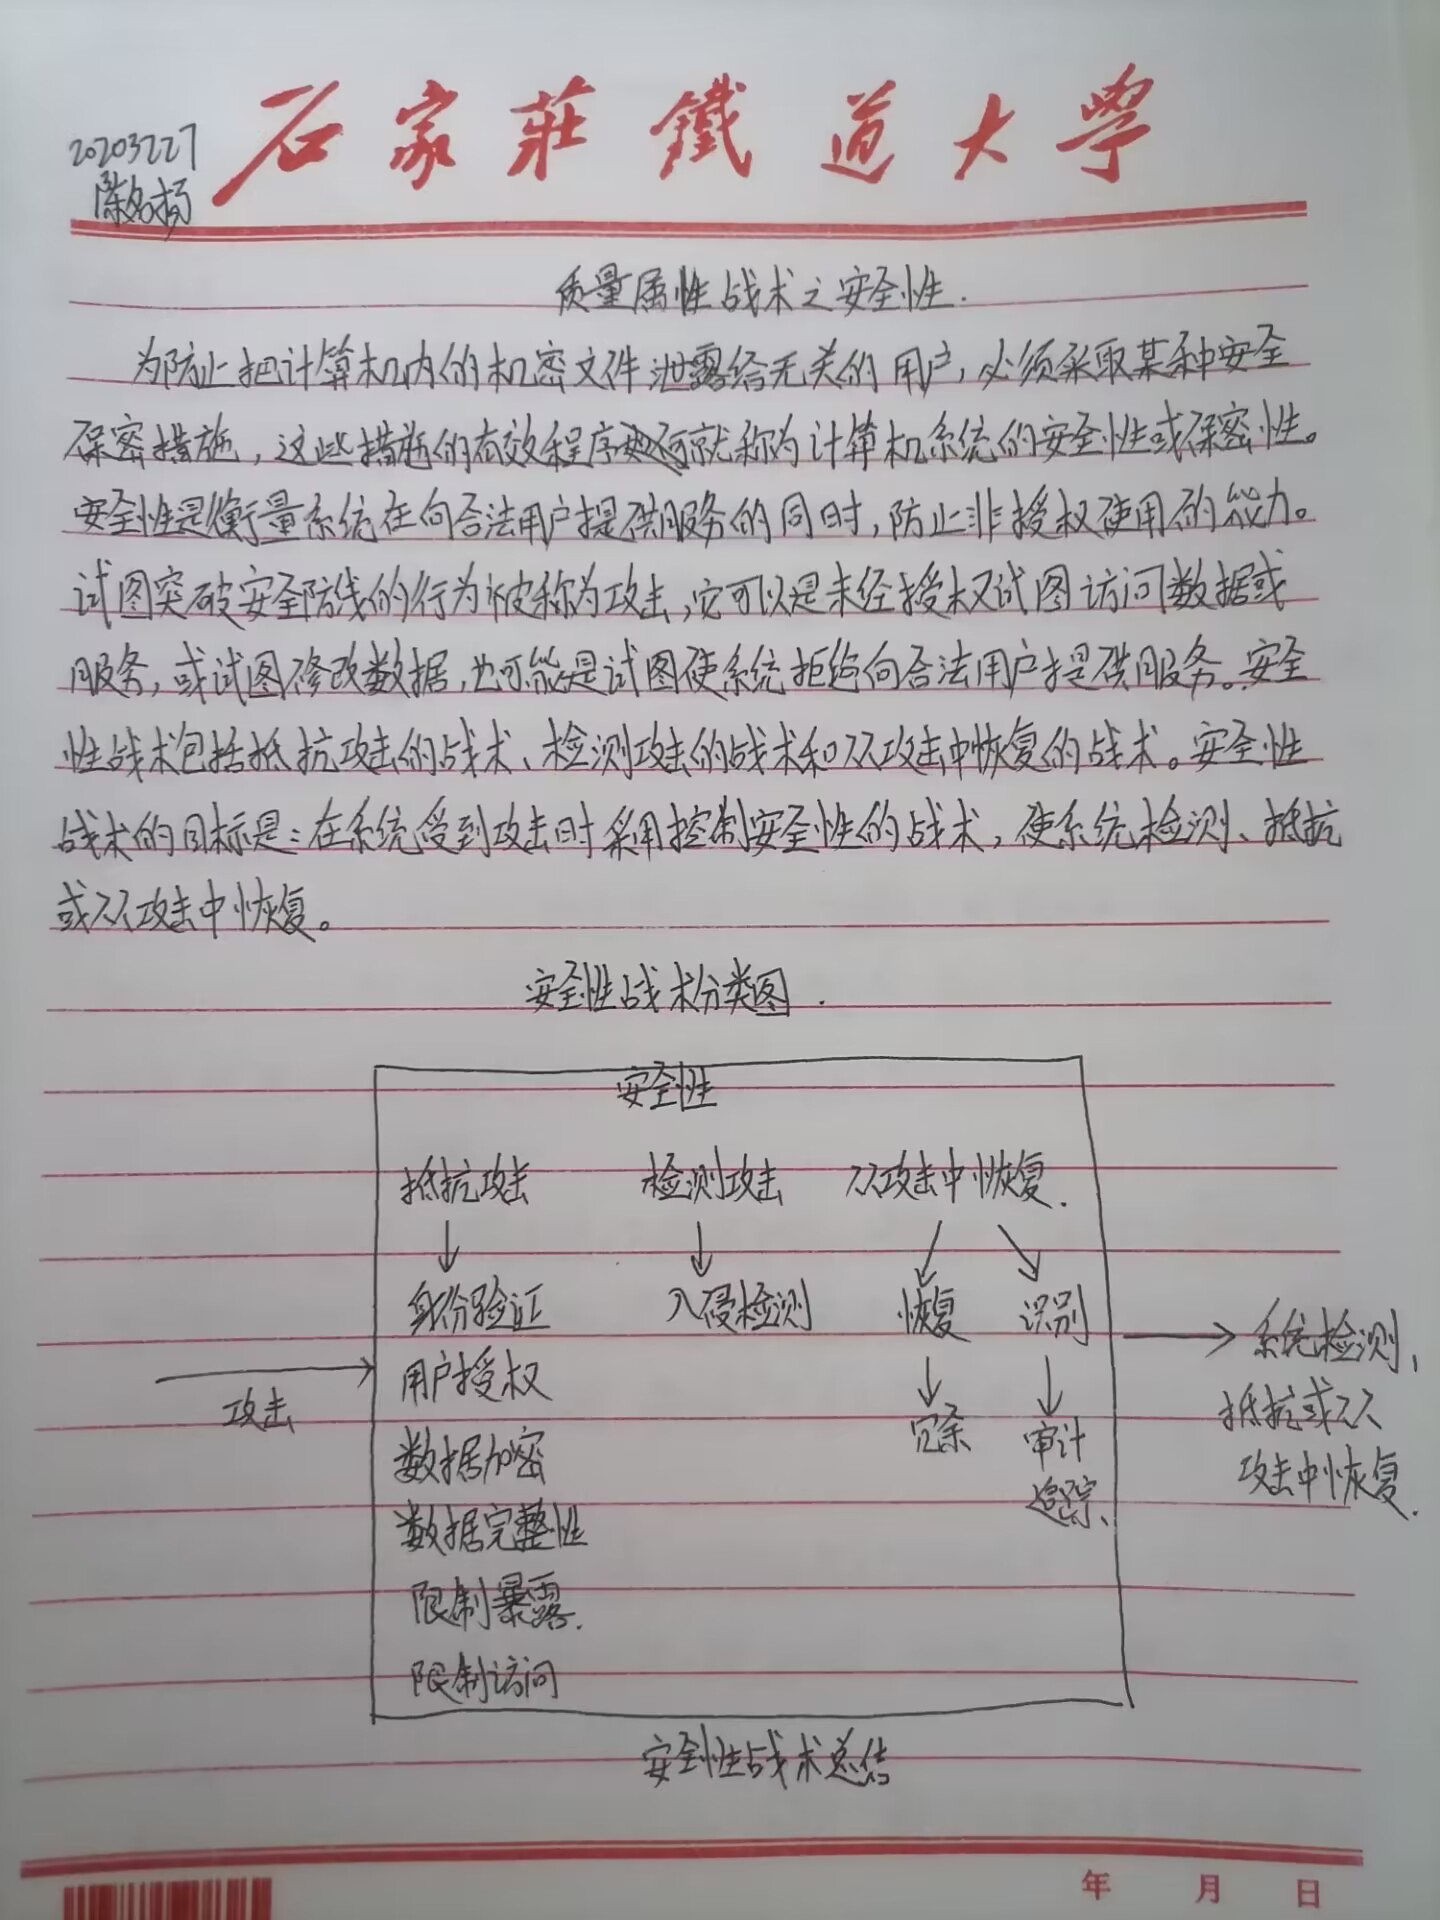 石家莊鐵道大學
20203227
陈名扬
质量属性战术之安全性.
为防止把计算机内的机密文件泄露给无关的用户,必须采取某种安全
保密措施,这些措施的有效程序就称为计算机系统的安全性或保密性。
安全性是衡量系统在向合法用户提供服务的同时,防止非授权使用的能力。
试图突破安全防线的行为被称为攻击,它可以是未经授权试图访问数据或
服务,或试图修改数据,也可能是试图使系统拒绝向合法用户提供服务。安全
性战术包括抵抗攻击的战术、检测攻击的战术和从攻击中恢复的战术。安全性
战术的目标是:在系统受到攻击时采用控制安全性的战术,使系统检测、抵抗
或从攻击中恢复。
安全性战术分类图.
安全性
抵抗攻击 检测攻击 从攻击中恢复.
身份验证 入侵检测 恢复 识别
用户授权
数据加密
数据完整性
限制暴露.
限制访问
冗余 审计
追踪、
攻击
系统检测,
抵抗或从
攻击中恢复.
安全性战术总结
年 月 日